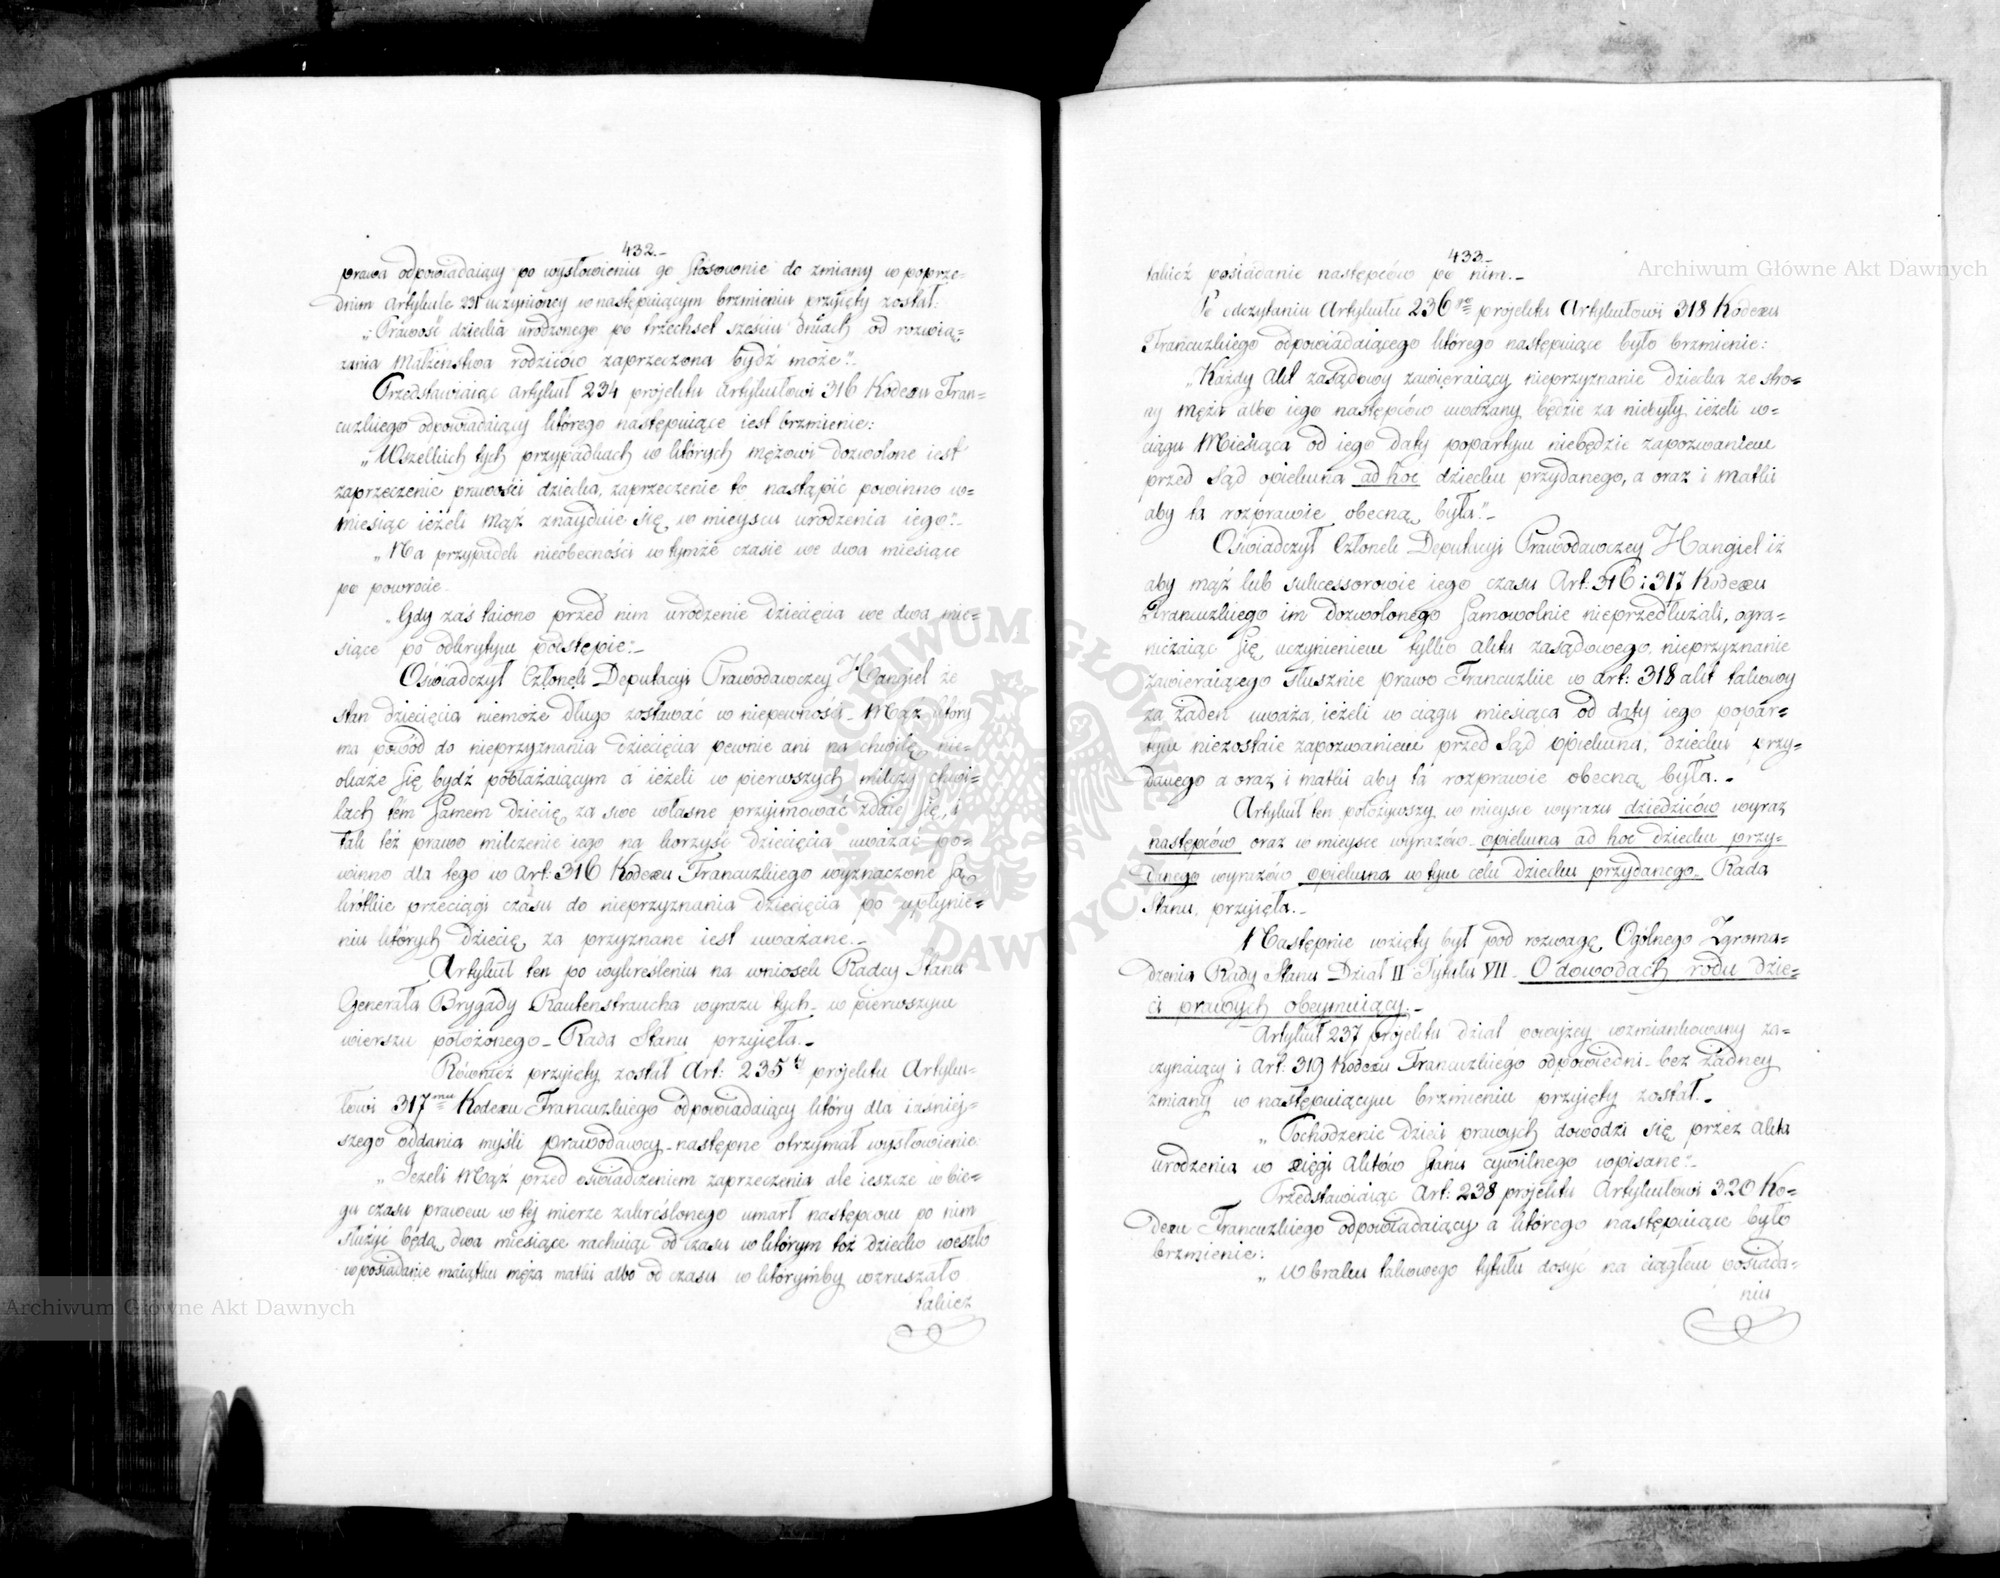 432.-
prawa odpowiadaiący po wysłowieniu go stosownie do zmiany w poprze=
dnim artykule 231 uczynioney w następuiącym brzmieniu przyięty został:
„Prawość dziecka urodzonego po trzechset sześciu dniach od rozwią=
zania Małżeństwa rodziców zaprzeczona bydź może".-
Przedstawiaiąc artykuł 234 projektu Artykułowi 316 Kodexu Fran=
cuzkiego odpowiadaiący którego następuiące iest brzmienie:
„Wszelkich tych przypadkach w których mężowi dozwolone iest
zaprzeczenie prawości dziecka, zaprzeczenie to nastąpić powinno w=
miesiąc ieżeli Mąż znayduie się w mieyscu urodzenia iego".-
„Na przypadek nieobecności w tymże czasie we dwa miesiące
po powrocie.
„Gdy zaś taiono przed nim urodzenie dziecięcia we dwa mie=
siące po odkrytym podstępie".-
Oświadczył Członek Deputacyi Prawodawczey Hangiel że
stan dziecięcia niemoże długo zostawać w niepewności - Mąż który
ma powód do nieprzyznania dziecięcia pewnie ani na chwilę nie=
okaże się bydź pobłażaiącym a ieżeli w pierwszych milczy chwi=
lach tém samem dziecię za swe własne przyimować zdaie się, i
tak też prawo milczenie iego na korzyść dziecięcia uważać po=
winno dla tego w Art: 316 Kodexu Francuzkiego wyznaczone są
krótkie przeciągi czasu do nieprzyznania dziecięcia po upłynie=
niu których dziecię za przyznane iest uważane.-
Artykuł ten po wykreśleniu na wniosek Radcy Stanu
Generała Brygady Rautenstraucha wyrazu tych - w pierwszym
wierszu położonego - Rada Stanu przyięła.-
Również przyięty został Art: 235ty projektu Artyku=
łowi 317mu Kodexu Francuzkiego odpowiadaiący który dla iaśniey=
szego oddania myśli prawodawcy - następne otrzymał wysłowienie:
„Jeżeli Mąż przed oświadczeniem zaprzeczenia ale ieszcze w bie=
gu czasu prawem w téy mierze zakreślonego umarł następcom po nim
służyć będą dwa miesiące rachuiąc od czasu w którym toż dziecko weszło
w posiadanie maiątku męża matki albo od czasu w którymby wzruszało
takież
433.-
takież posiadanie następców po nim.-
Po odczytaniu Artykułu 236go projektu Artykułowi 318 Kodexu
Francuzkiego odpowiadaiącego którego następuiące było brzmienie:
„Każdy Akt zasądowy zawieraiący nieprzyznanie dziecka ze stro=
ny męża albo iego następców uważany będzie za niebyły ieżeli w=
ciągu Miesiąca od iego daty popartym niebędzie zapozwaniem
przed Sąd opiekuna ad hoc dziecku przydanego, a oraz i matki
aby ta rozprawie obecną była".-
Oświadczył Członek Deputacyi Prawodawczey Hangiel iż
aby mąż lub sukcessorowie iego czasu Art: 316 i 317 Kodexu
Francuzkiego im dozwolonego samowolnie nieprzedłużali, ogra=
niczaiąc się uczynieniem tylko aktu zasądowego, nieprzyznanie
zawieraiącego słusznie prawo Francuzkie w art: 318 akt takowy
za żaden uważa, ieżeli w ciągu miesiąca od daty iego popar=
tym niezostaie zapozwaniem przed Sąd opiekuna, dziecku przy=
danego a oraz i matki aby ta rozprawie obecną była.-
Artykuł ten położywszy w mieysce wyrazu dziedziców wyraz
następców oraz w mieysce wyrazów - opiekuna ad hoc dziecku przy=
danego wyrazów opiekuna w tym celu dziecku przydanego - Rada
Stanu, przyięła.-
Następnie wzięty był pod rozwagę Ogólnego Zgroma=
dzenia Rady Stanu Dział II Tytułu VII - O dowodach rodu dzie=
ci prawych obeymuiący.-
Artykuł 237 projektu dział powyżey wzmiankowany za=
czynaiący i Art: 319 Kodexu Francuzkiego odpowiedni - bez żadney
zmiany w następuiącym brzmieniu przyięty został.-
„Pochodzenie dzieci prawych dowodzi się przez akta
urodzenia w xięgi aktów stanu cywilnego wpisane".-
Przedstawiaiąc Art: 238 projektu Artykułowi 320 Ko=
dexu Francuzkiego odpowiadaiący a którego następuiące było
brzmienie:
„W braku takowego tytułu dosyć na ciągłem posiada=
niu
Archiwum Główne Akt Dawnych
Archiwum Główne Akt Dawnych
ARCHIWUM GŁÓWNE
AKT DAWNYCH